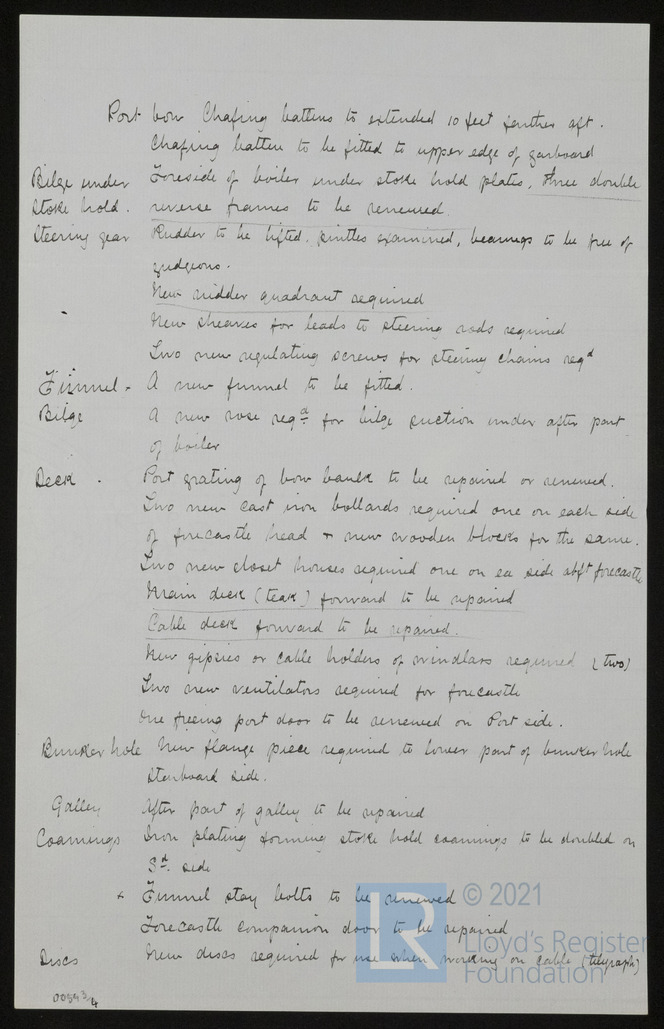 Port bow Chafing battens to extended 10 feet further aft.
Chafing batten to be fitted to upper edge of garboard
Bilge under Foreside of boiler under stoke hold plates, three double
stoke hold. reverse frames to be renewed.
Steering gear Rudder to be lifted, pintles examined, bearings to be free of
gudgeons.
New rudder quadrant required
New sheaves for leads to steering rods required
Two new regulating screws for steering chains reqd
Funnel - A new funnel to be fitted.
Bilge A new rose reqd for bilge suction under after part
of boiler
Deck. Port grating of bow baulk to be repaired or renewed.
Two new cast iron bollards required one on each side
of forecastle head + new wooden blocks for the same.
Two new closet houses required one on ea side abft forecastle
Main deck (teak) forward to be repaired
Cable deck forward to be repaired.
New gipsies or cable holders of windlass required (two)
Two new ventilators required for forecastle
One freeing port door to be renewed on Port side.
Bunker hole New flange piece required to lower part of bunker hole
starboard side.
Galley After part of galley to be repaired
Coamings Iron plating forming stoke hold coamings to be doubled on
Sd. side
x Funnel stay bolts to be renewed
Forecastle companion door to be repaired
Discs New discs required for use when working on cable (telegraph)
00543/4
LR © 2021
Lloyd's Register
Foundation